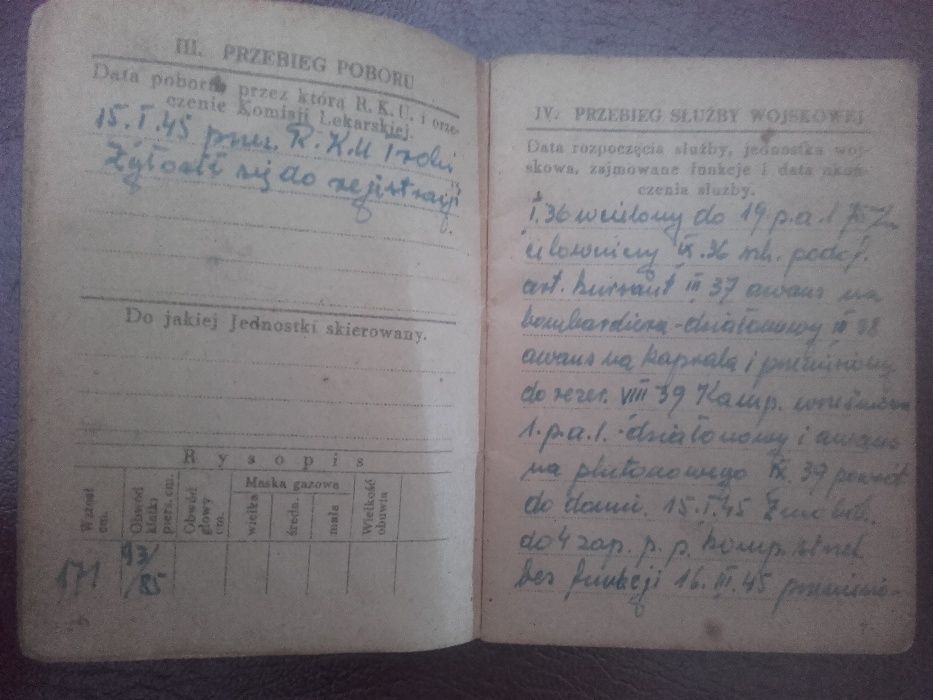 III. PRZEBIEG POBORU
Data poboru przez którą R. K. U. i orze-
czenie Komisji Lekarskiej.
15. I. 45 przez R. K. U
Zgłosił się do rejestracji
Do jakiej Jednostki skierowany.
Rysopis
Wzrost cm.
Obwód klatki piers. cm.
Obwód głowy cm.
Maska gazowa
wielka
średn.
mała
Wielkość obuwia
171
93/85
IV. PRZEBIEG SŁUŻBY WOJSKOWEJ
Data rozpoczęcia służby, jednostka woj-
skowa, zajmowane funkcje i data ukoń-
czenia służby.
I. 36 wcielony do 19 p.a.l
celowniczy IX. 36 szk. podof.
art. kursant III 37 awans na
bombardiera-działonowy 38
awans na kaprala i przeniesiony
do rezer. VIII 39 Kamp. wrześniowa
1. p.a.l. - działonowy i awans
na plutonowego IX. 39 powrót
do domu. 15. I. 45 Zmobil.
do 4 zap. p. p. komp. strzel.
bez funkcji 16. III. 45 przeniesio-